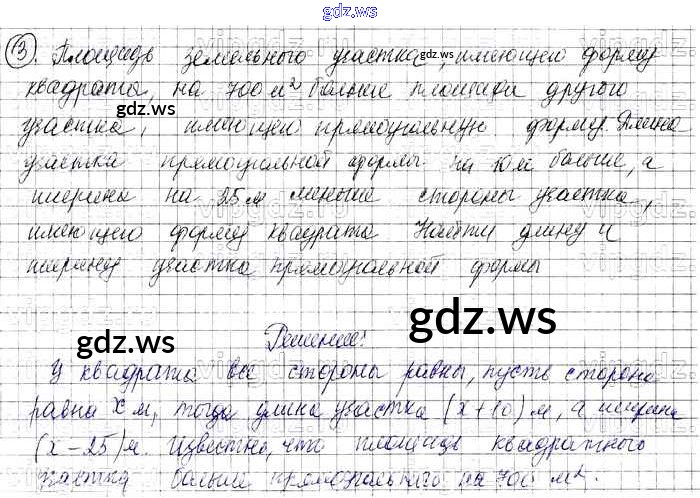 gdz.ws
3. Площадь земельного участка, имеющего форму
квадрата, на 700 м² больше площади другого
участка, имеющего прямоугольную форму. Длина
участка прямоугольной формы на 10 м больше, а
ширина на 25 м меньше стороны участка,
имеющего форму квадрата. Найти длину и
ширину участка прямоугольной формы
Решение:
У квадрата все стороны равны, пусть сторона
равна x м, тогда длина участка (x+10) м, а ширина
(x-25) м. Известно, что площадь квадратного
участка больше прямоугольного на 700 м².
gdz.ws
gdz.ws
gdz.ws
gdz.ws
gdz.ws